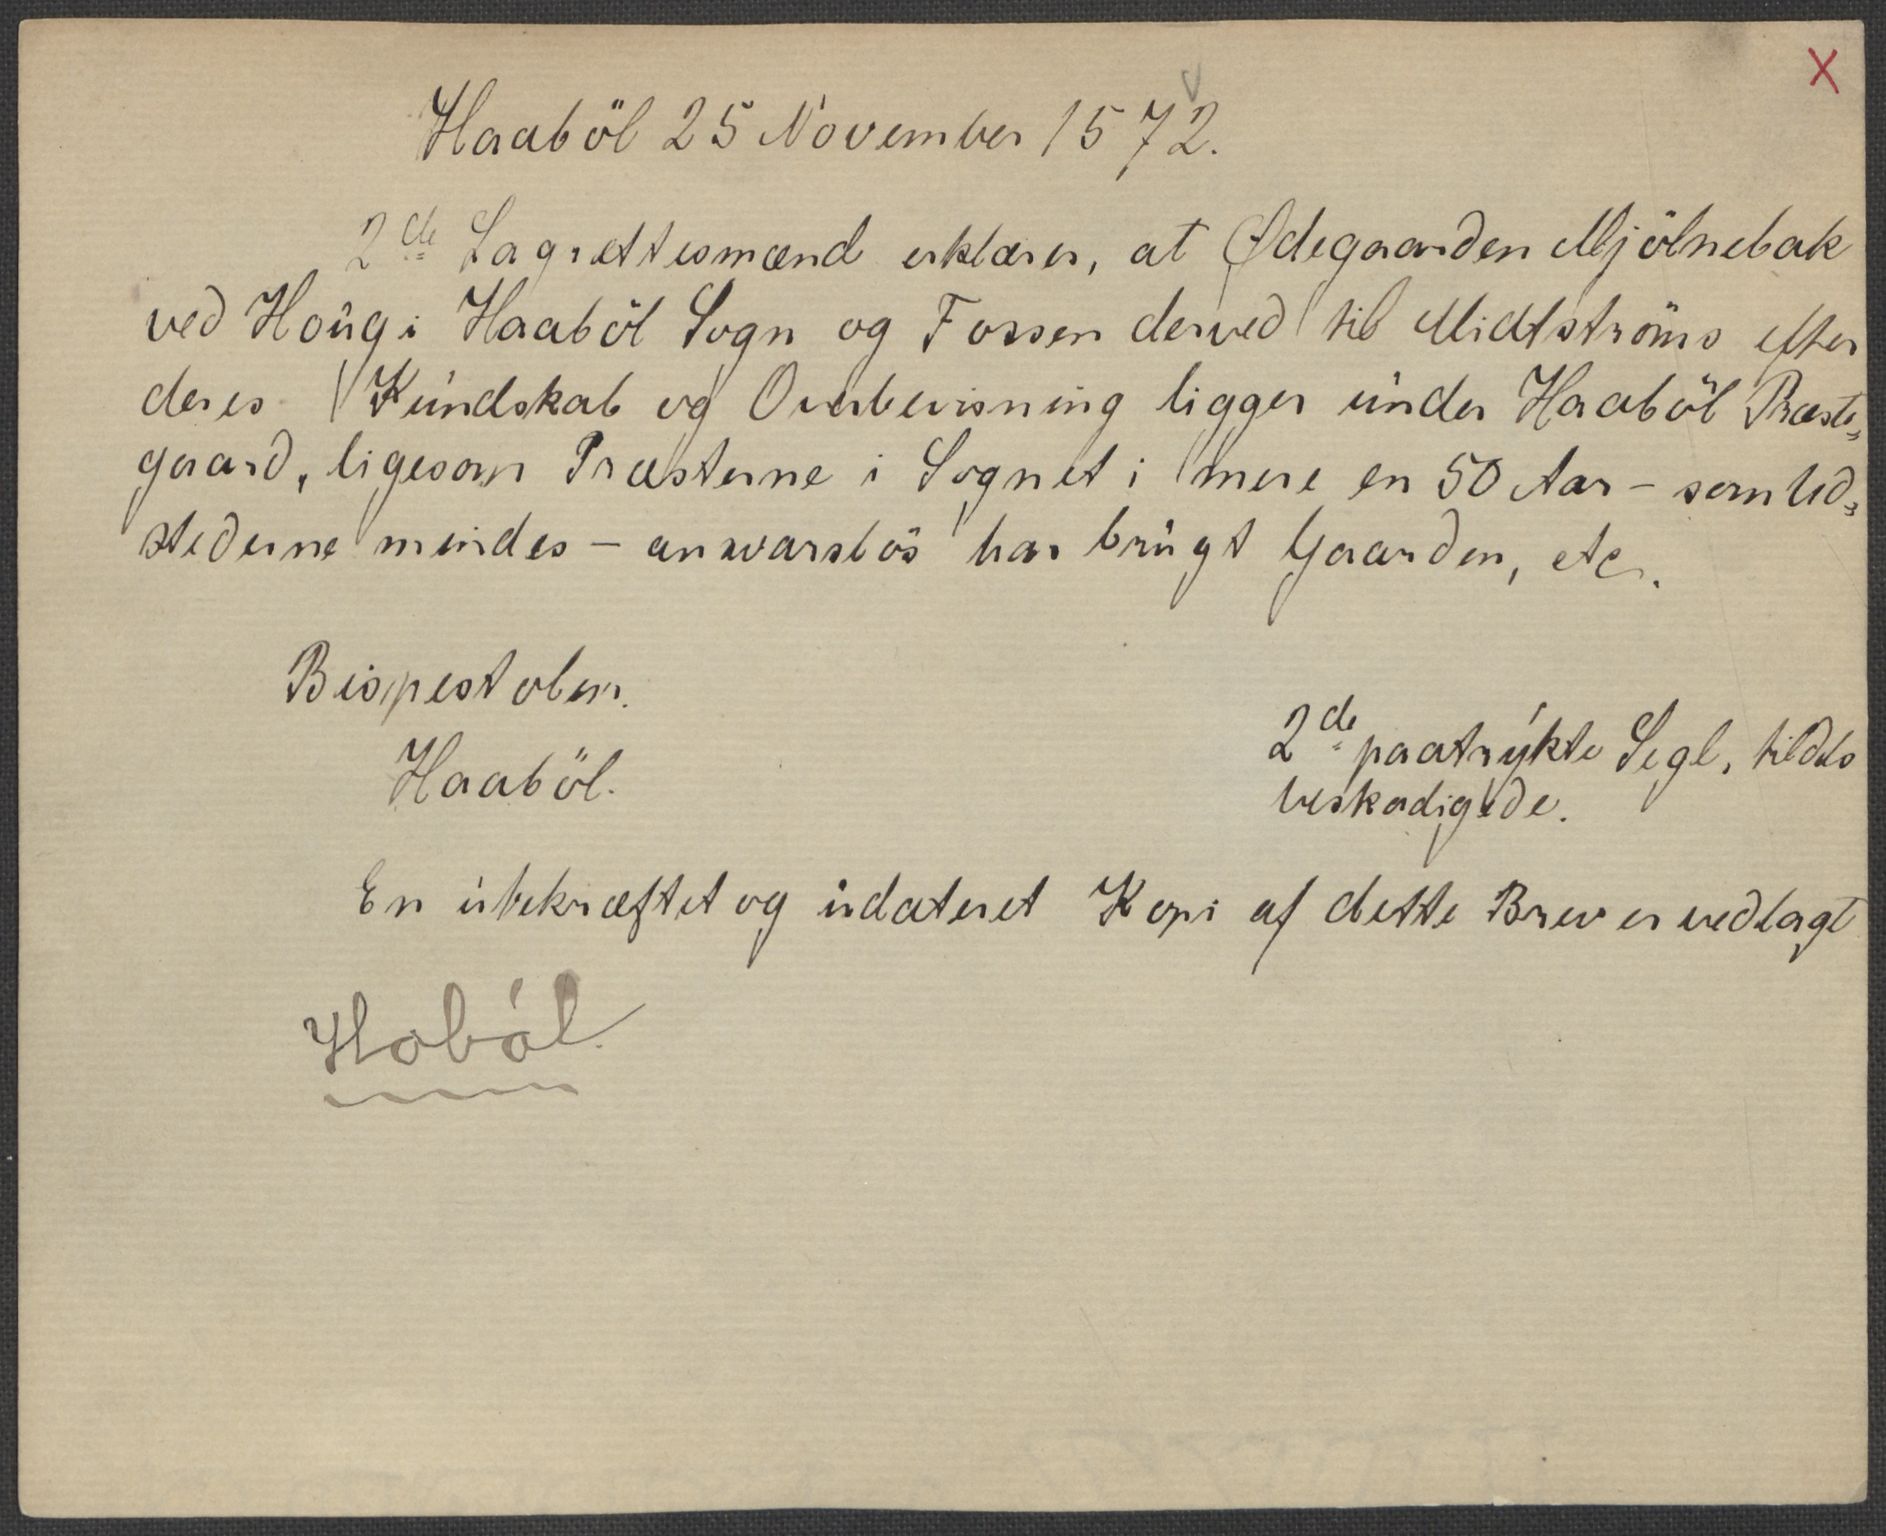 X
Haaböl 25 November 1572.
2de Lagrettesmænd erklærer, at Ødegaarden Mjölnebak
ved Houg i Haaböl Sogn og Fossen derved til Midtströms efter
deres Kundskab og Overbevisning ligger under Haaböl Præste-
gaard, ligesom Præsterne i Sognet i mere en 50 Aar - som Ud-
stederne mindes - ansvarslös har brugt Gaarden, etc.
Bispestolen.
Haaböl.
2de paatrykte Segl, tildels
beskadigede.
En ubekræftet og udateret Kopi af dette Brev er vedlagt
Hoböl.